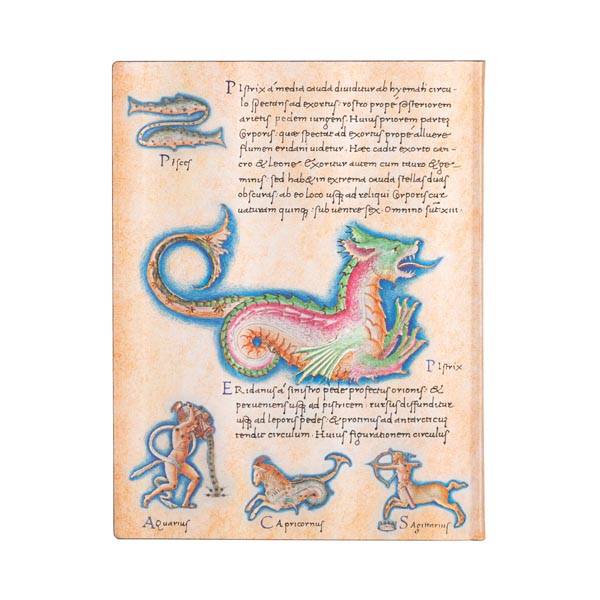 PIstrix a media cauda diuiditur ab hyemali circu
lo spectans ad exortus: rostro prope posteriorem
arietis pedem iungens. Huius priorem partem
corporis: quae spectat ad exortus prope alluere
flumen eridani uidetur. Haec cadit exorto can
cro & Leone & exoritur autem cum tauro & ge
minis: sed hab& in extrema cauda stellas duas
obscuras: ab eo loco usq; ad reliqui corporis cur
uaturam quinq: sub uentre sex. Omnino sut xiii.
PIsces
PIstrix
ERidanus a sinistro pede profectus orionis: &
perueniens usq; ad pistricem: rursus diffunditur
usq; ad leporis pedes: & protinus ad antarcticu
tendit circulum. Huius figurationem circulus
AQuarius
CApricornus
SAgittarius